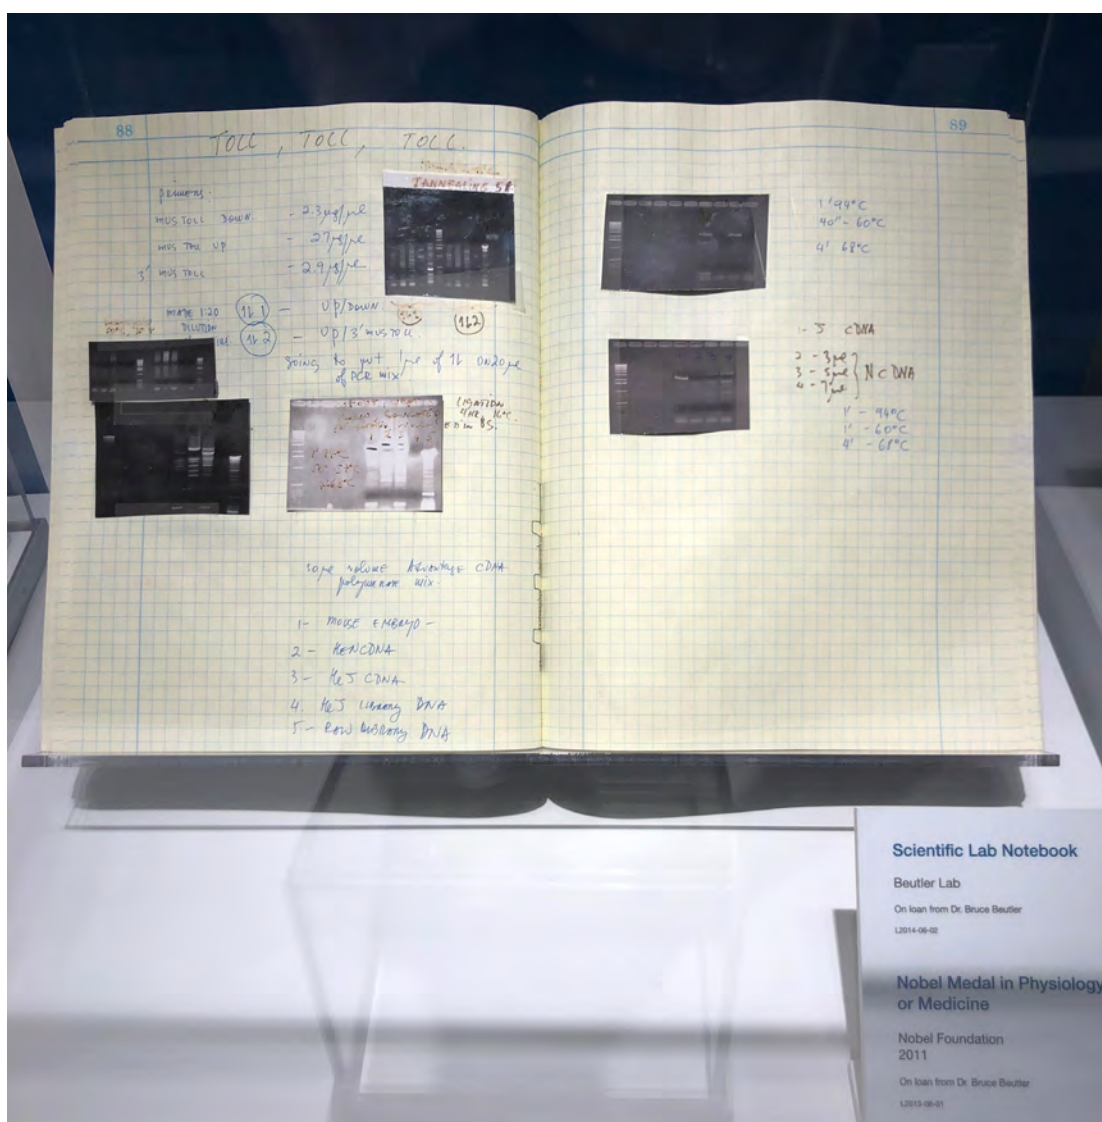 88
TOLL, TOLL, TOLL.
primers.
MUS TOLL DOWN. - 2.3µg/µl
MUS TOLL UP - 27µg/µl
3' MUS TOLL - 2.9µg/µl
MADE 1:20 1 - UP/DOWN.
DILUTION 2 - UP/3' MUS TOLL
going to put 1µl of on 20µl
of PCR mix
LIGATION
10µl volume Advantage cDNA
polymerase mix.
1- MOUSE EMBRYO -
2 - HeN CDNA
3 - HeJ CDNA
4. HeJ Library DNA
5 - RAW LIBRARY DNA
89
1' 94°C
40" - 60°C
4' 68°C
1- J CDNA
2 - 3µl
3 - 5µl } N CDNA
4 - 7µl
1' - 94°C
1' - 60°C
4' - 68°C
Scientific Lab Notebook
Beutler Lab
On loan from Dr. Bruce Beutler
L2014-06-02
Nobel Medal in Physiology
or Medicine
Nobel Foundation
2011
On loan from Dr. Bruce Beutler
L2013-08-01